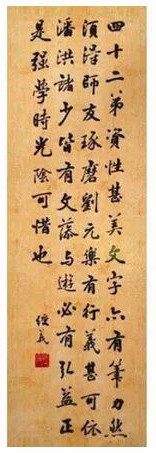 四十二弟資性甚美文字亦有筆力然
須得師友琢磨劉元樂有行義甚可依
潘洪諸少皆有文藻与遊必有弘益正
是强學時光陰可惜也